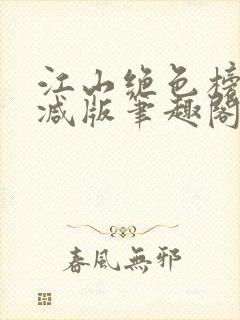 江山绝色榜
减版笔趣阁
春風無邪